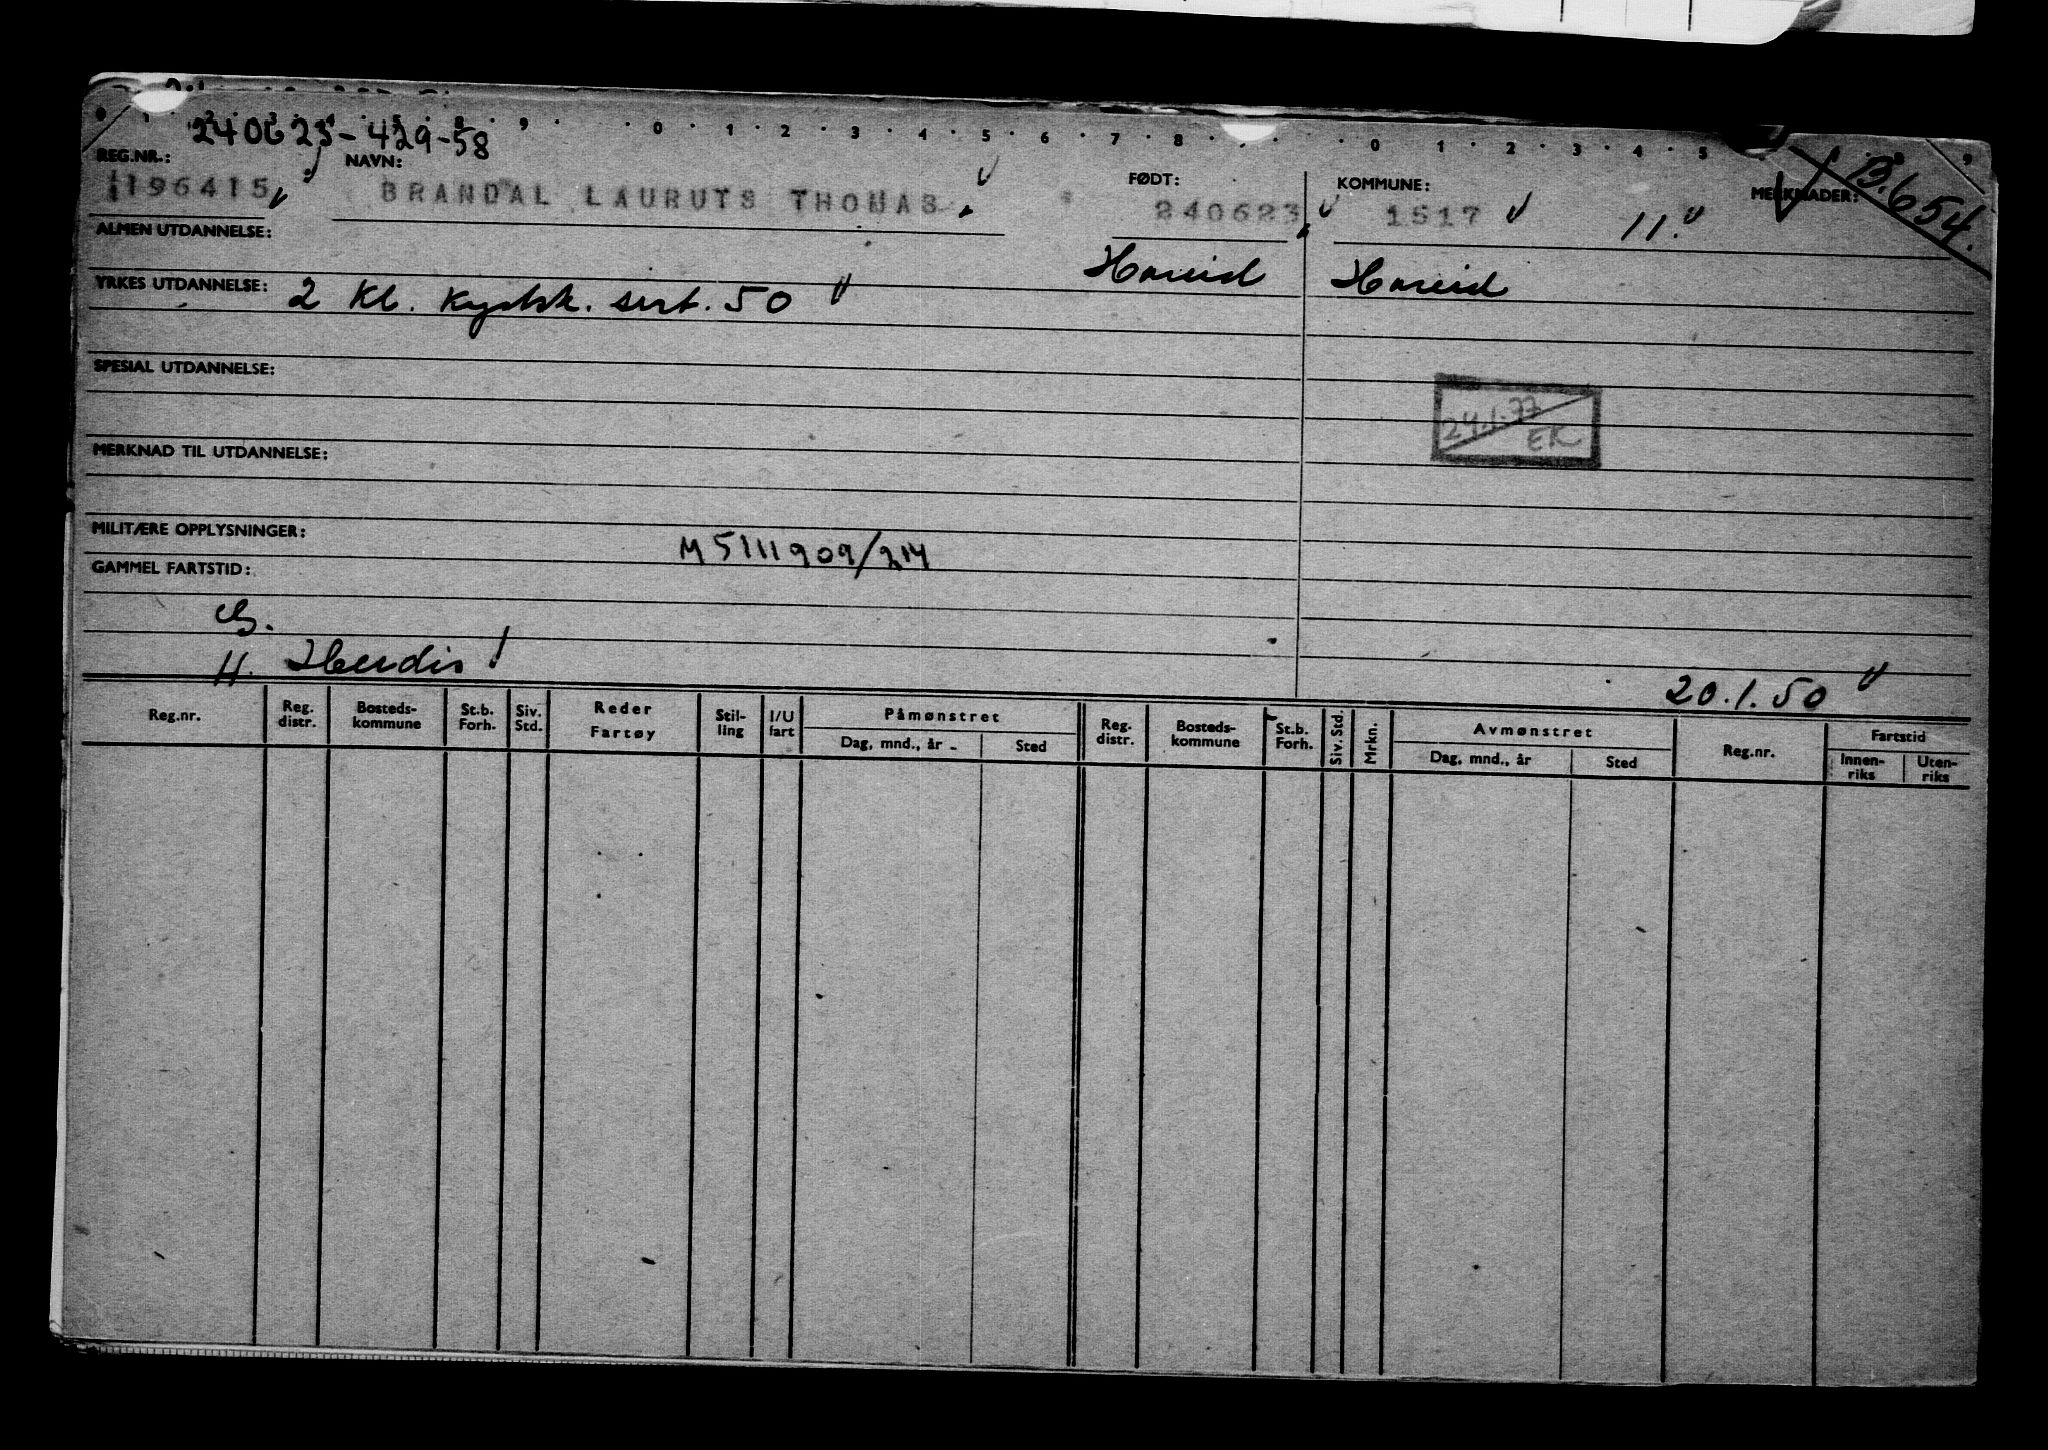 240623-429-58
0 1 2 3 4 5 6 7 8 9 0 1 2 3 4 5 6 7 8 0 1 2 3 4 5 9
REG.NR.: NAVN: FØDT: KOMMUNE: MERKNADER: B.654.
1196415 BRANDAL LAURUTS THOMAS 240623 1517 11.
ALMEN UTDANNELSE: Hareid Hareid
YRKES UTDANNELSE: 2 Kl. Kystsk. sert. 50
SPESIAL UTDANNELSE:
24.1.77
EK
MERKNAD TIL UTDANNELSE:
MILITÆRE OPPLYSNINGER: M5111909/214
GAMMEL FARTSTID:
G.
H. Herdis 20.1.50
Reg.nr. Reg. distr. Bosteds-kommune St.b. Forh. Siv. Std. Reder Fartøy Stil-ling I/U fart Påmønstret Dag, mnd., år Sted Reg. distr. Bosteds-kommune St.b. Forh. Siv. Std. Mrkn. Avmønstret Dag, mnd., år Sted Reg.nr. Fartstid Innen-riks Uten-riks